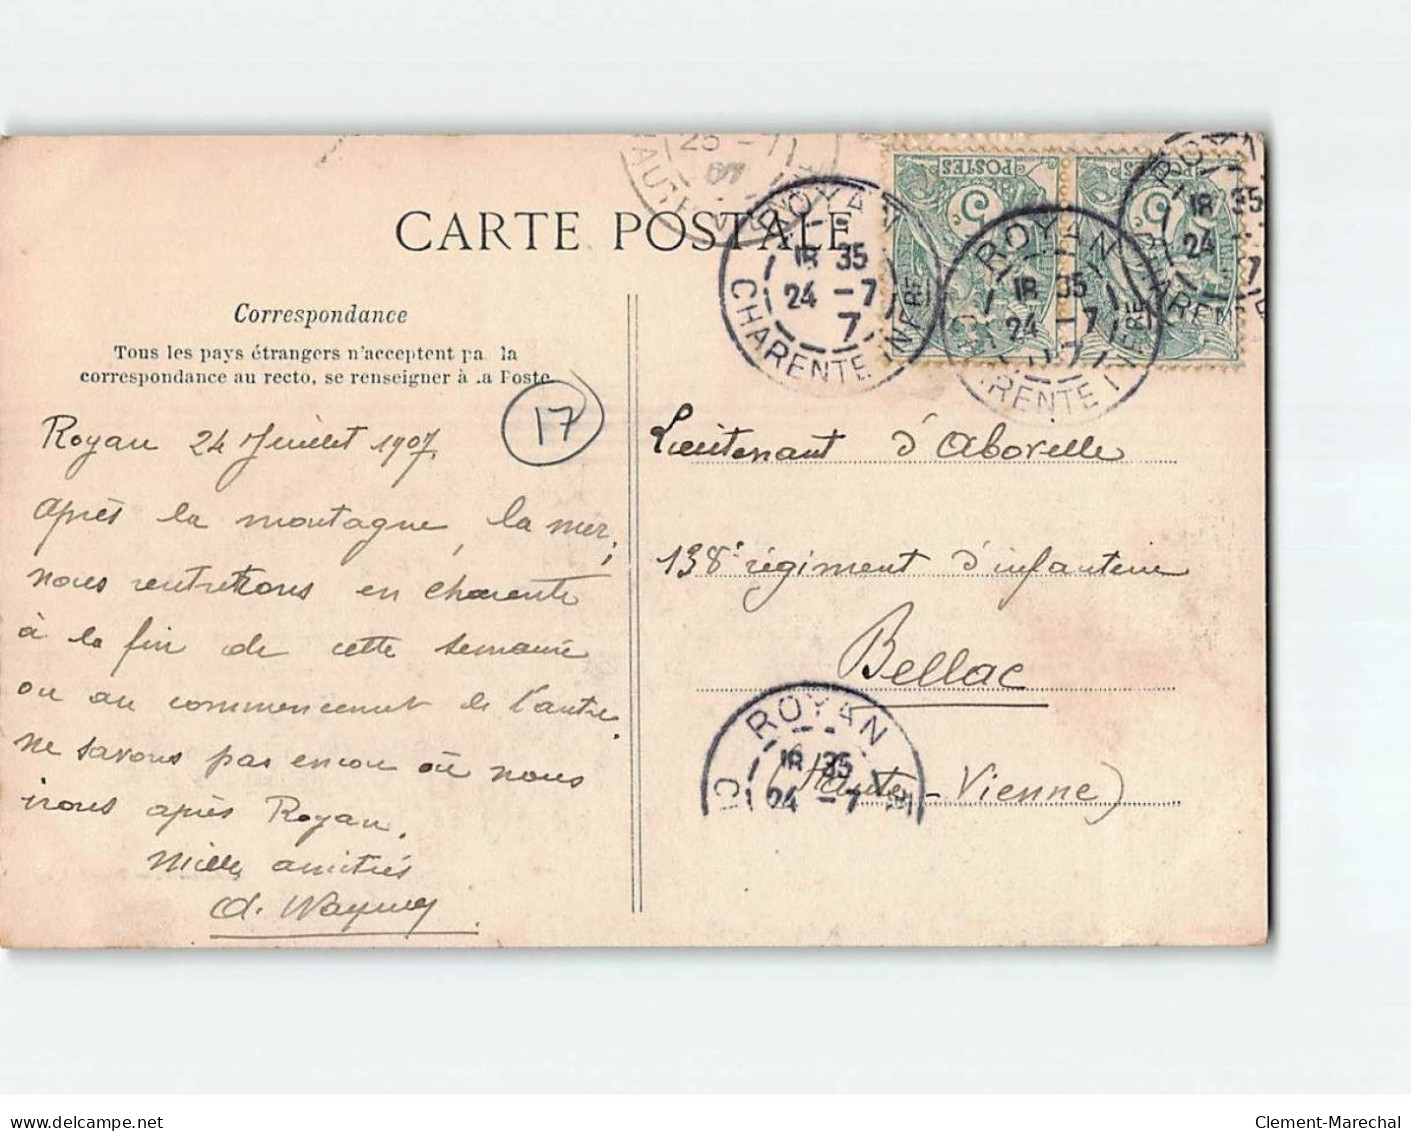 CARTE POSTALE
Correspondance
Tous les pays étrangers n'acceptent pa. la
correspondance au recto, se renseigner à la Poste
17
Royan 24 Juillet 1907,
après la montagne, la mer;
nous rentrerons en Charente
à la fin de cette semaine
ou au commencement de l'autre.
ne savons pas encore où nous
irons après Royan.
Mille amitiés
Lieutenant d'Aborelle
138e régiment d'infanterie
Bellac
(Haute-Vienne)
POSTES
5
POSTES
5
25 -7
07
ROYAN
18 35
24 -7
7
CHARENTE INFRE
ROYAN
18 35
24 -7
07
RENTE I
ROYAN
18 35
24
7
ROYAN
18 35
24 -7
delcampe.net
Clement-Marechal